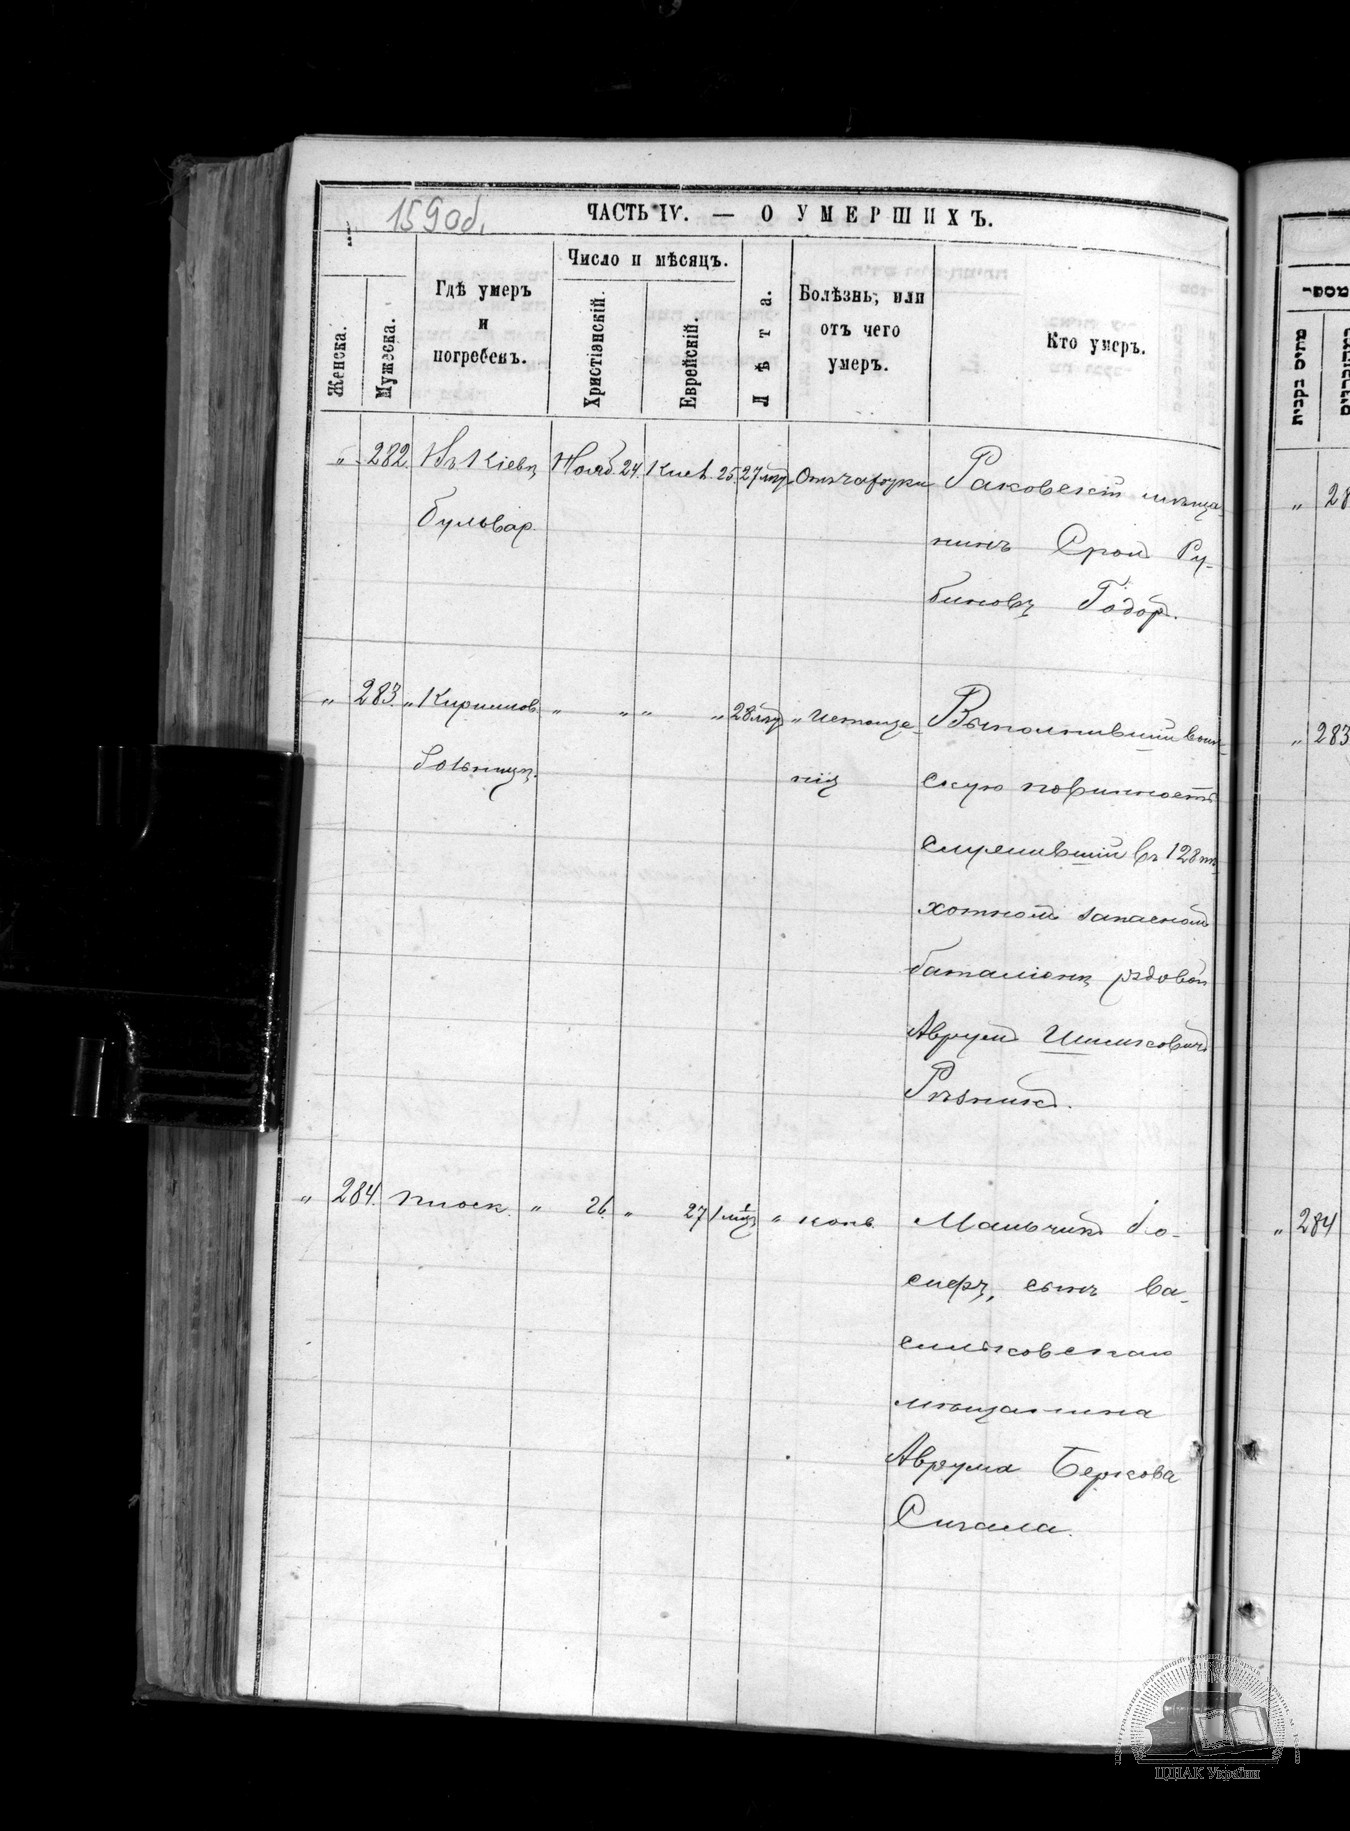 159 об.
ЧАСТЬ IV. — О УМЕРШИХЪ.
Женска.
Мужеска.
Гдѣ умеръ
и
погребенъ.
Число и мѣсяцъ.
Христіянскій.
Еврейскій.
Лѣта.
Болѣзнь, или
отъ чего
умеръ.
Кто умеръ.
" 282. Въ Кіевѣ Нояб. 24. Кисл. 25. 27 лѣт Отъ чахотки Раковскій мѣща
бульвар. нинъ Срол Ру-
биновъ Годор.
" 283. " Кирилов. " " " " 28 лѣт " истоще Выполнивший воин-
больницѣ. нія скую повинность
служивший въ 128 пѣ
хотном запасном
баталіонѣ рядовой
Аврум Шмильковичъ
Рѣзник.
" 284. Плоск. " 26. " 27 1 мѣц " коль Мальчик Іо-
сифъ, сынъ Ва-
сильковскаго
мѣщанина
Аврума Беркова
Сигала.
מספ-
מתים נקבות
" 28
" 283
" 284
ЦДІАК України